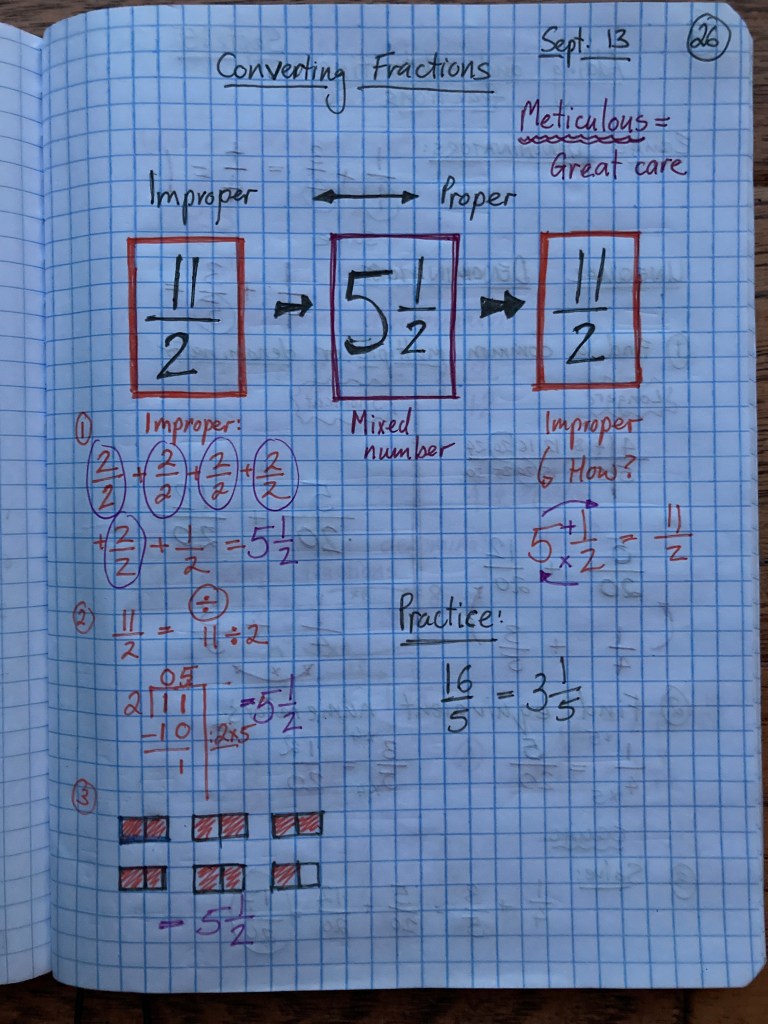 Sept. 13
26
Converting Fractions
Meticulous =
Great care
Improper ↔ Proper
11/2 → 5 1/2 → 11/2
Improper:
Mixed number
Improper
How?
① 2/2 + 2/2 + 2/2 + 2/2
+ 2/2 + 1/2 = 5 1/2
5 + 1/2 × = 11/2
② 11/2 = 11 ÷ 2
÷
05.
2 11
-10 :2×5
1
= 5 1/2
Practice:
16/5 = 3 1/5
③
= 5 1/2